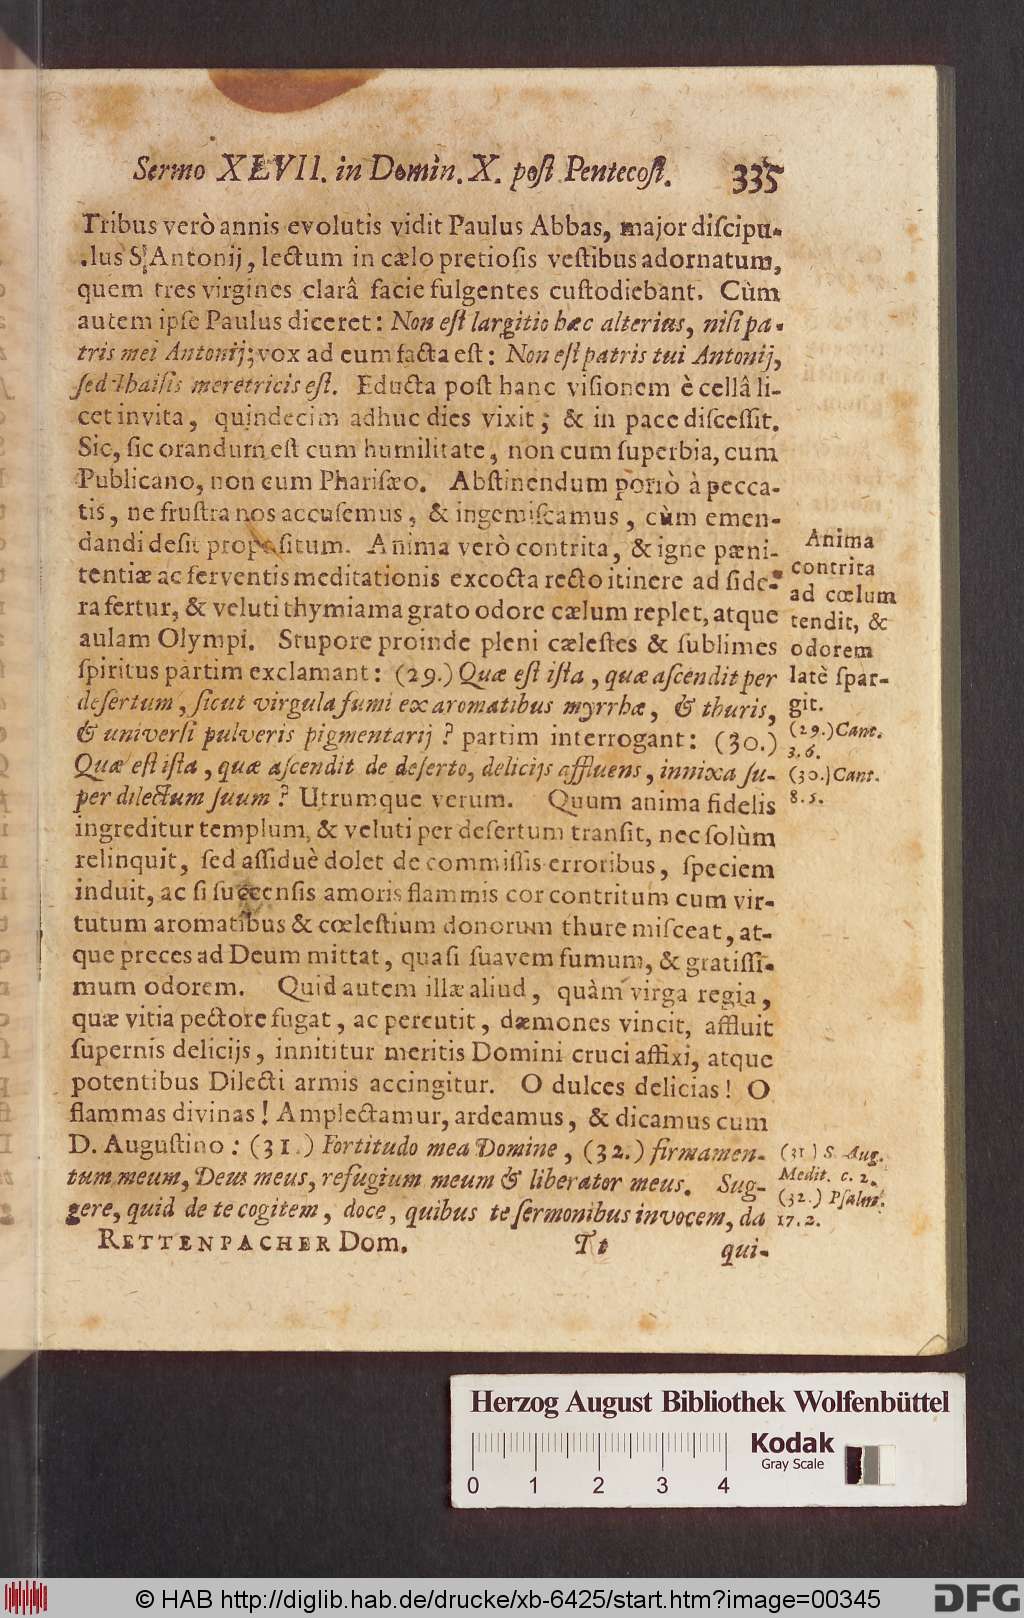 Sermo XLVII. in Domin. X. poſt Pentecoſt. 335
Tribus verò annis evolutis vidit Paulus Abbas, major diſcipu-
lus S. Antonij, lectum in cælo pretioſis veſtibus adornatum,
quem tres virgines clarâ facie fulgentes cuſtodiebant. Cùm
autem ipſe Paulus diceret: Non eſt largitio hæc alterius, niſi pa-
tris mei Antonij; vox ad eum facta eſt: Non eſt patris tui Antonij,
ſed Thaiſis meretricis eſt. Educta poſt hanc viſionem è cellâ li-
cet invita, quindecim adhuc dies vixit; & in pace diſceſſit.
Sic, ſic orandum eſt cum humilitate, non cum ſuperbia, cum
Publicano, non cum Phariſæo. Abſtinendum porrò à pecca-
tis, ne fruſtra nos accuſemus, & ingemiſcamus, cùm emen-
dandi deſit propoſitum. Anima verò contrita, & igne pæni-
tentiæ ac ferventis meditationis excocta recto itinere ad ſide-
ra fertur, & veluti thymiama grato odore cælum replet, atque
aulam Olympi. Stupore proinde pleni cæleſtes & ſublimes
ſpiritus partim exclamant: (29.) Quæ eſt iſta, quæ aſcendit per
deſertum, ſicut virgula fumi ex aromatibus myrrhæ, & thuris,
& univerſi pulveris pigmentarij? partim interrogant: (30.)
Quæ eſt iſta, quæ aſcendit de deſerto, delicijs affluens, innixa ſu-
per dilectum ſuum? Utrumque verum. Quum anima fidelis
ingreditur templum, & veluti per deſertum tranſit, nec ſolùm
relinquit, ſed aſſiduè dolet de commiſſis erroribus, ſpeciem
induit, ac ſi ſuccenſis amoris flammis cor contritum cum vir-
tutum aromatibus & cœleſtium donorum thure miſceat, at-
que preces ad Deum mittat, quaſi ſuavem fumum, & gratiſſi-
mum odorem. Quid autem illæ aliud, quàm virga regia,
quæ vitia pectore fugat, ac percutit, dæmones vincit, affluit
ſupernis delicijs, innititur meritis Domini cruci affixi, atque
potentibus Dilecti armis accingitur. O dulces delicias! O
flammas divinas! Amplectamur, ardeamus, & dicamus cum
D. Auguſtino: (31.) Fortitudo mea Domine, (32.) firmamen-
tum meum, Deus meus, refugium meum & liberator meus. Sug-
gere, quid de te cogitem, doce, quibus te ſermonibus invocem, da
RETTENPACHER Dom. Tt qui-
Anima
contrita
ad cœlum
tendit, &
odorem
latè ſpar-
git.
(29.) Cant.
3. 6.
(30.) Cant.
8. 5.
(31) S. Aug.
Medit. c. 2.
(32.) Pſalm.
17. 2.
Herzog August Bibliothek Wolfenbüttel
Kodak
Gray Scale
0 1 2 3 4
© HAB http://diglib.hab.de/drucke/xb-6425/start.htm?image=00345
DFG